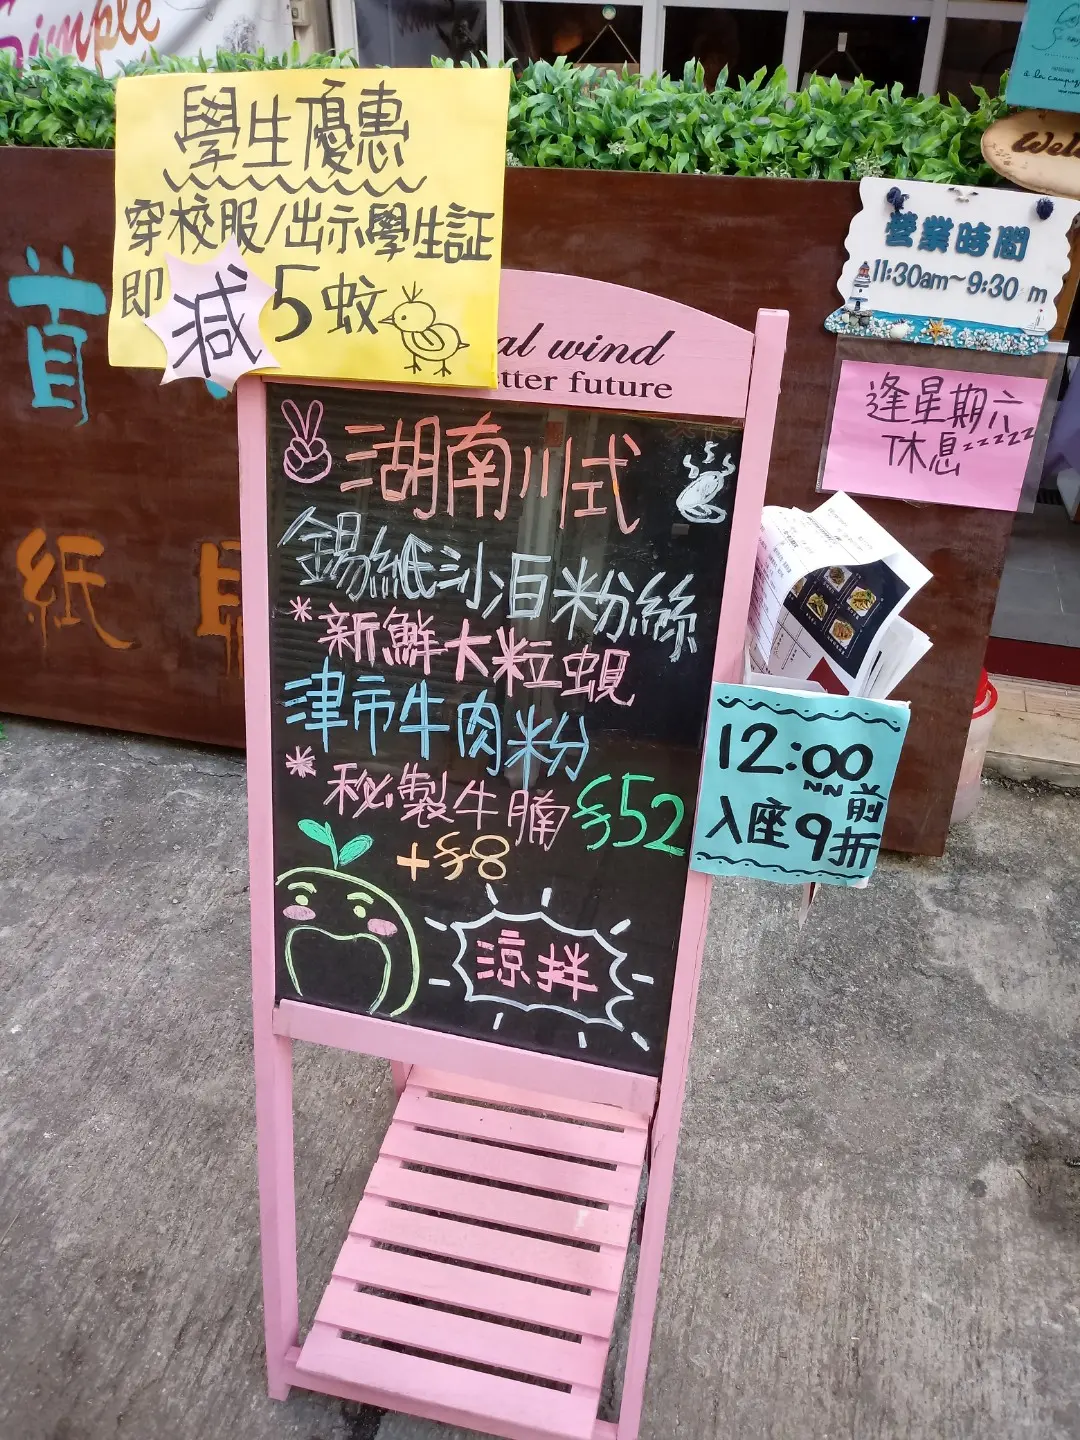 Simple
學生優惠
穿校服/出示學生証
即減5蚊
al wind
tter future
湖南川式
錫紙沙泊粉絲
*新鮮大粒蜆
津市牛肉粉
*秘製牛腩 $52
+$8
涼拌
營業時間
11:30am~9:30 m
逢星期六
休息zzzzz
12:00
NN前
入座9折
首
紙